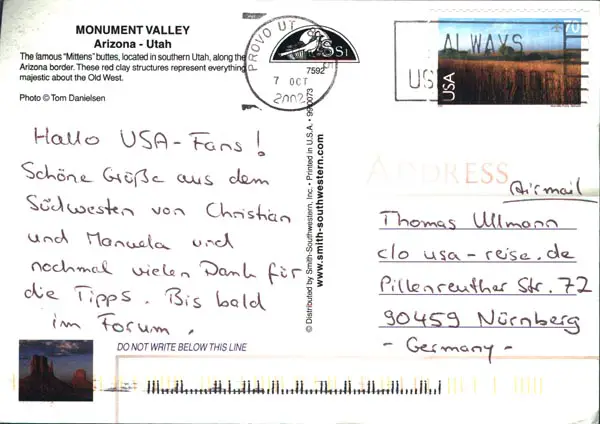 MONUMENT VALLEY
Arizona - Utah
The famous "Mittens" buttes, located in southern Utah, along the
Arizona border. These red clay structures represent everything
majestic about the Old West.
Photo © Tom Danielsen
Hallo USA-Fans!
Schöne Grüße aus dem
Südwesten von Christian
und Manuela und
nochmal vielen Dank für
die Tipps. Bis bald
im Forum.
DO NOT WRITE BELOW THIS LINE
PROVO UT
7 OCT
2002
7592
© Distributed by Smith-Southwestern, Inc. • Printed in U.S.A. • 990073
www.smith-southwestern.com
ALWAYS
US
USA
70
ADDRESS
Airmail
Thomas Ullmann
c/o usa-reise.de
Pillenreuther Str. 72
90459 Nürnberg
- Germany -